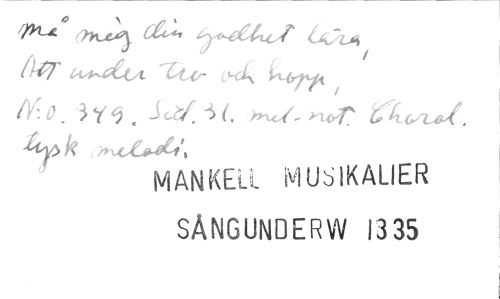 må mig din godhet lära,
Att under tro och hopp,
N:o. 349. Sid. 31. mel-not. Choral.
tysk melodi.
MANKELL MUSIKALIER
SÅNGUNDERW 1335